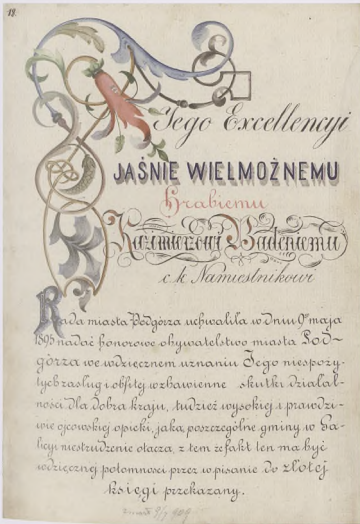 18.
Jego Excellencyi
JAŚNIE WIELMOŻNEMU
Hrabiemu
Kazimierzowi Badeniemu
c. k. Namiestnikowi
Rada miasta Podgórza uchwaliła w dniu 9º maja
1895 nadać honorowe obywatelstwo miasta Pod-
górza we wdzięcznem uznaniu Jego niespoży-
tych zasług i obfitej w zbawienne skutki działal-
ności dla dobra kraju, tudzież wysokiej i prawdzi-
wie ojcowskiej opieki, jaką poszczególne gminy w Ga-
licyi niestrudzenie otacza, z tem że fakt ten ma być
wdzięcznej potomności przez wpisanie do złotej
księgi przekazany.
zmarł 9/7 909